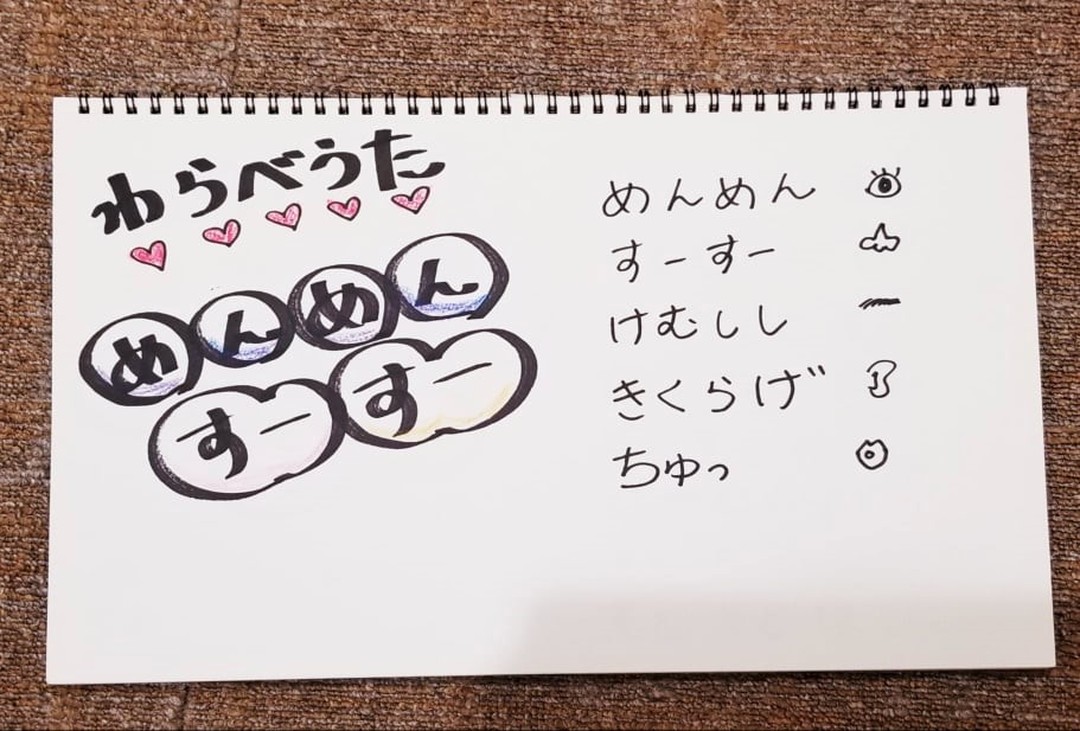 わらべうた
めんめん
すーすー
めんめん
すーすー
けむしし
きくらげ
ちゅっ